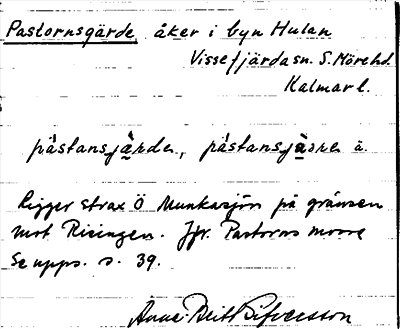 Pastornsgärde, åker i byn Hulan
Vissefjärda sn. S. Möre hd.
Kalmar l.
påstansjärde, påstansjäre ä.
Ligger strax Ö Munkasjön på gränsen
mot Risingen. Jfr. Pastorns moore
Se upps. s. 39.
Anna-Britt Sifversson